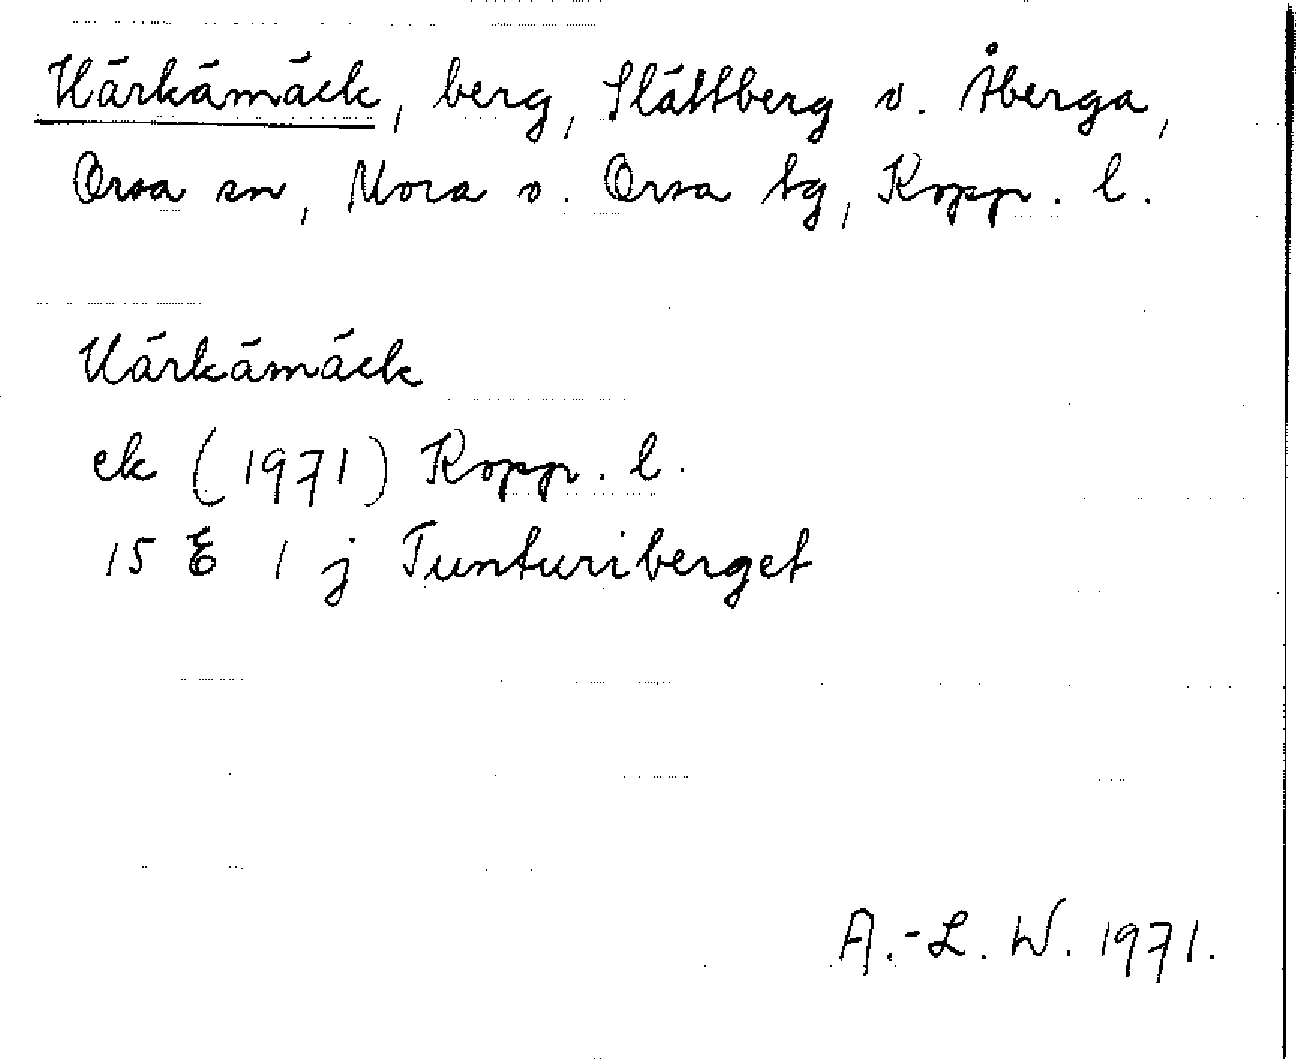 Härkämäck, berg, Slättberg o. Åberga,
Orsa sn, Mora o. Orsa tg, Kopp. l.
Härkämäck
ek (1971) Kopp. l.
15 E 1 j Tunturiberget
A.-L. W. 1971.